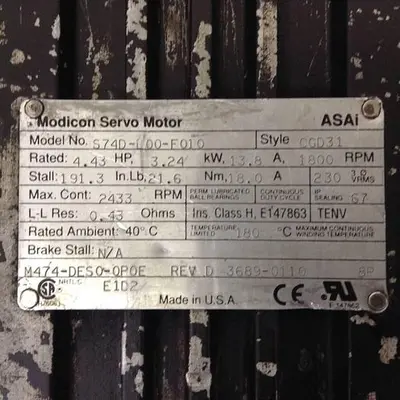 Modicon Servo Motor ASAi
Model No. S74D-L00-F010 Style CGD31
Rated: 4.43 HP, 3.24 kW, 13.8 A, 1800 RPM
Stall: 191.3 In.Lb, 21.6 Nm, 18.0 A, 230 3Ø VRMS
Max. Cont: 2433 RPM PERM LUBRICATED BALL BEARINGS CONTINUOUS DUTY CYCLE IP SEALING 67
L-L Res: 0.43 Ohms Ins. Class H, E147863 TENV
Rated Ambient: 40°C TEMPERATURE LIMITED 180 °C MAXIMUM CONTINUOUS WINDING TEMPERATURE
Brake Stall: N/A
M474-DES0-0P0E REV D 3689-0110 8P
SA NRTL/C E1D2
Made in U.S.A. CE RU